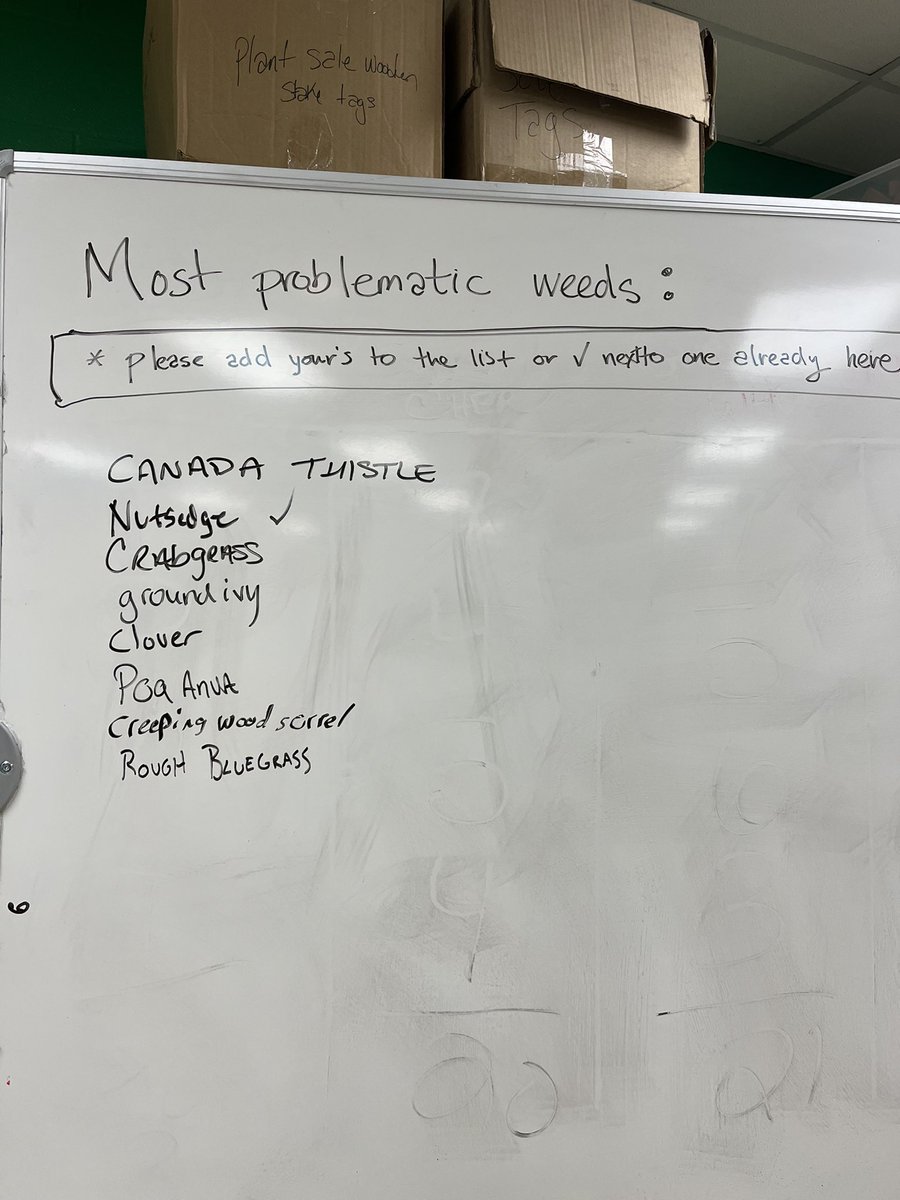 Plant sale wooden
stake tags
Tags
Most problematic weeds:
* please add your's to the list or ✓ next to one already here
CANADA THISTLE
Nutsedge ✓
CRAbgRASS
ground ivy
Clover
Poa ANUA
Creeping wood sorrel
ROUGH BLUEGRASS
6